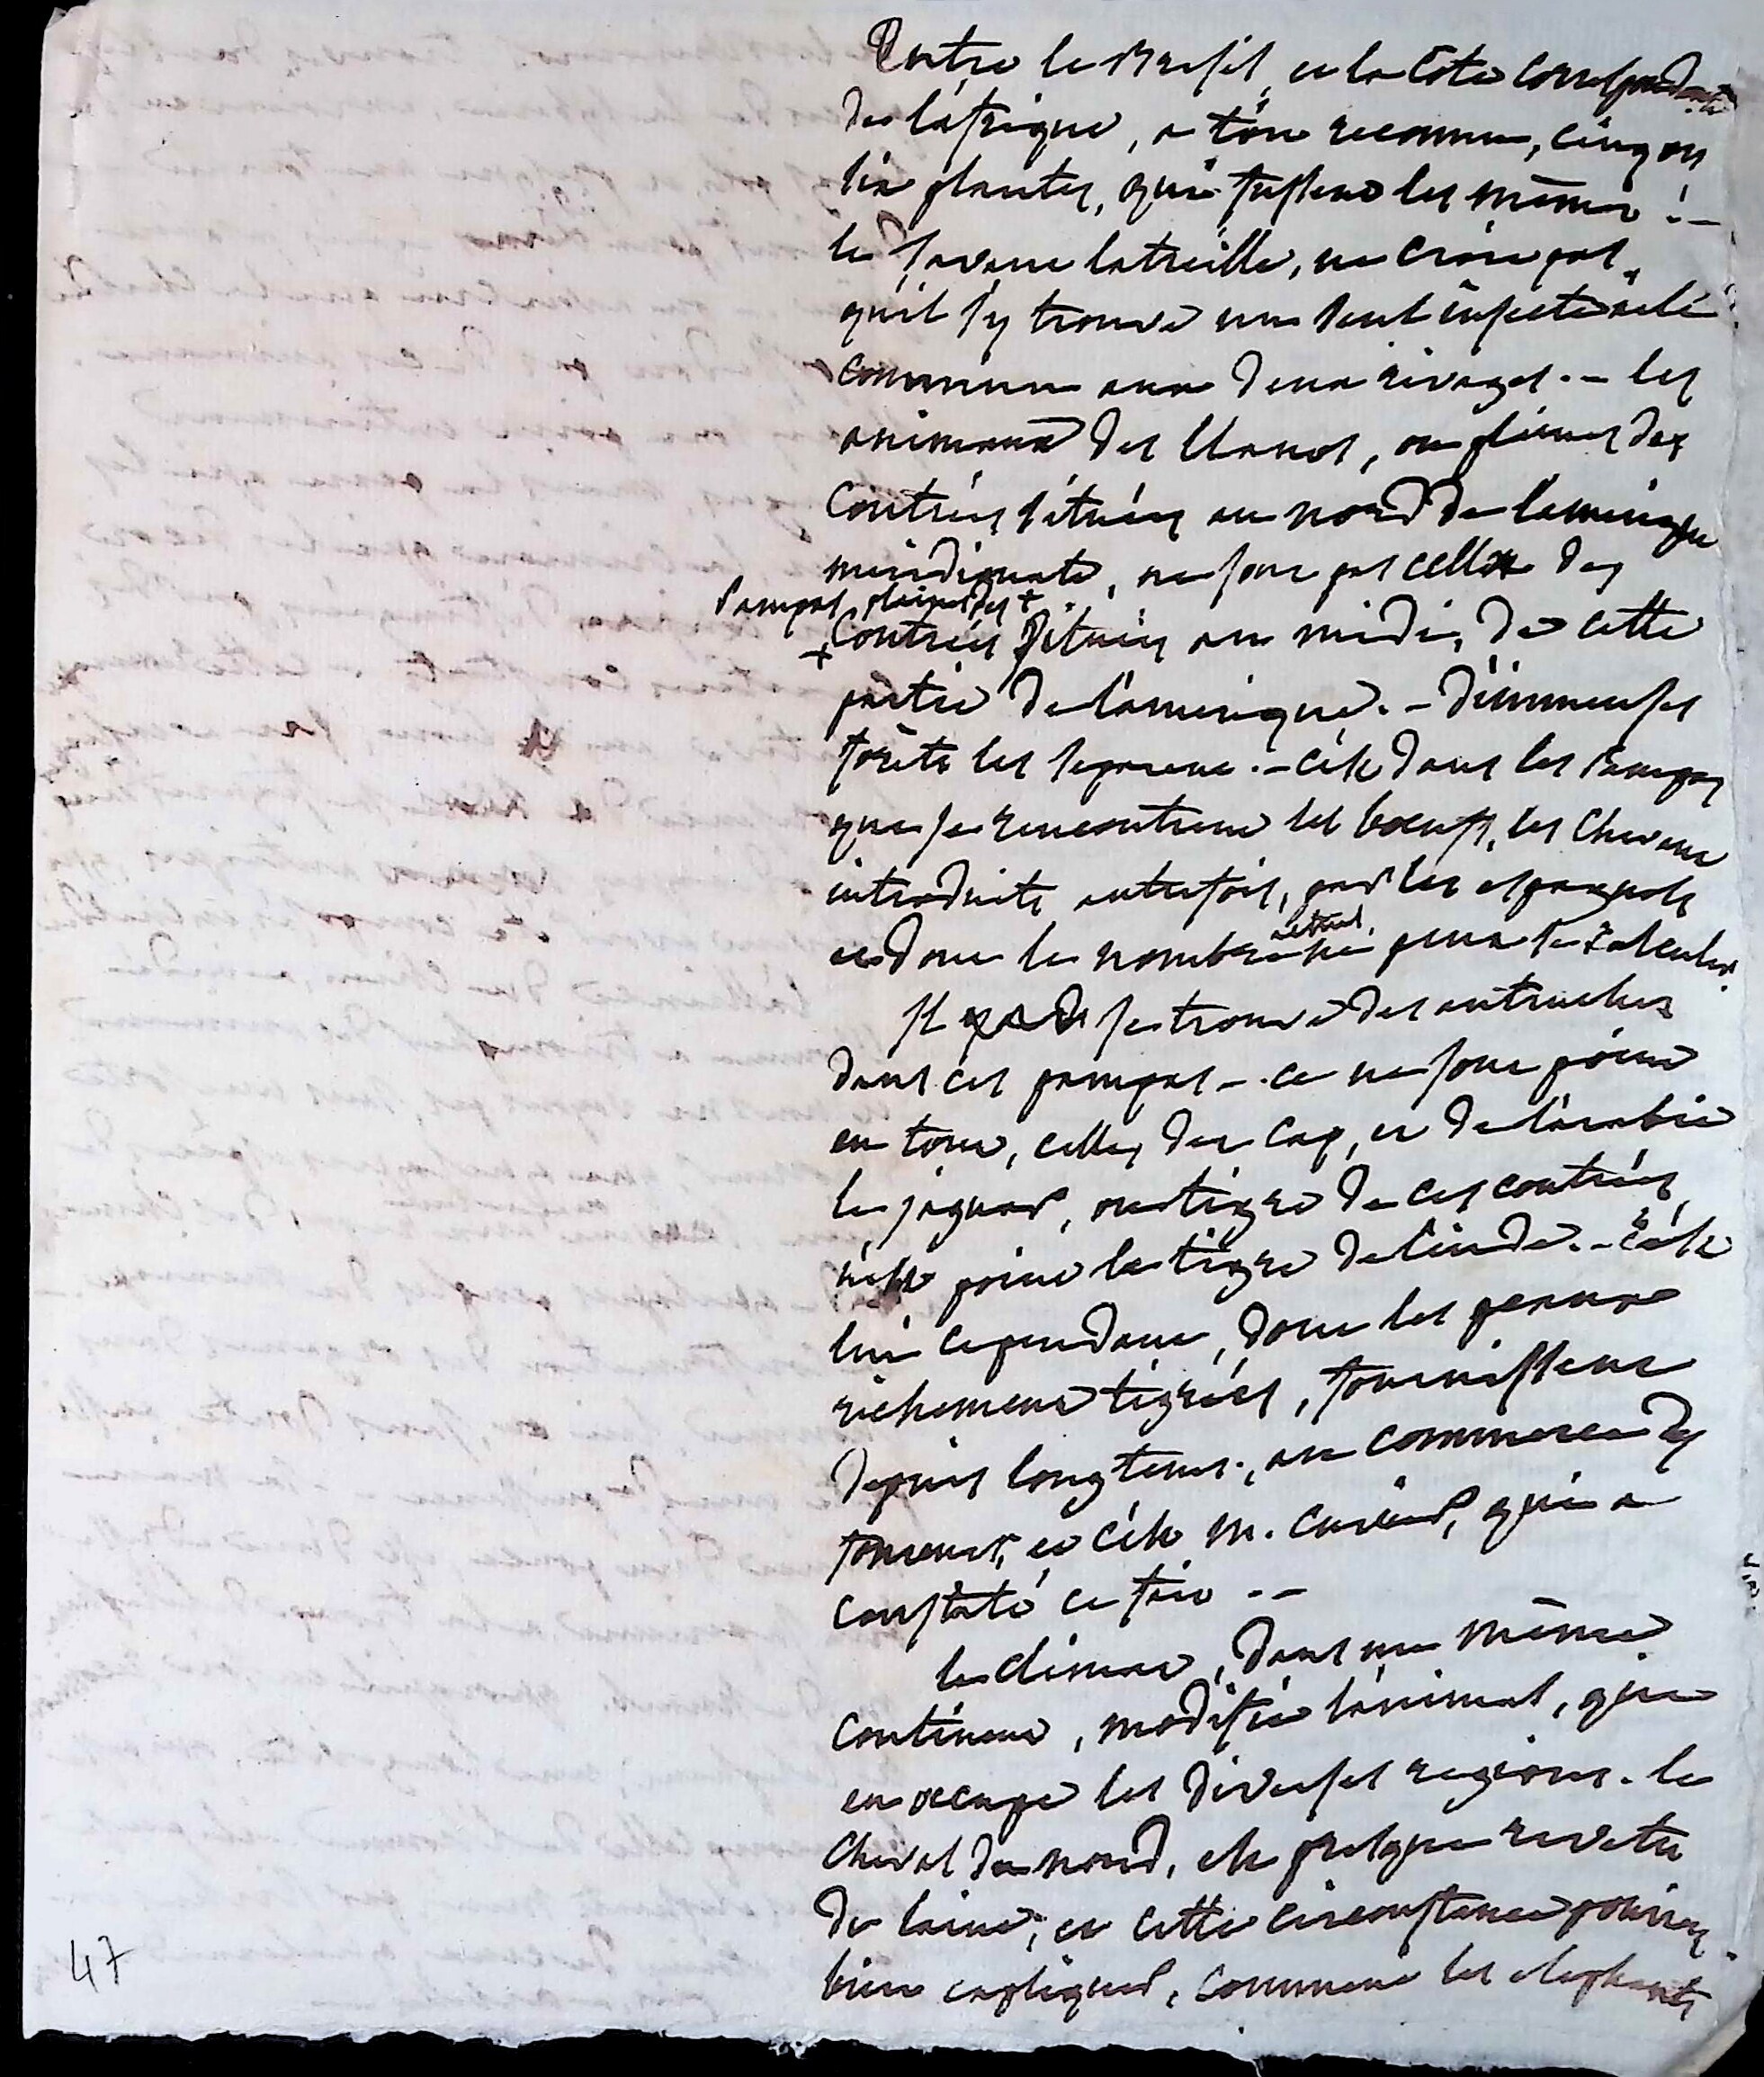 Entre le Bresil, et la Côte correspondante
de l'afrique, a t'on reconnu, cinq ou
six plantes, qui fussent les mêmes ! -
le savant latreille, ne croit pas,
qu'il s'y trouve un seul insecte ailé
commun aux deux rivages. - les
animaux des llanos, ou plaines des
Contrées situées au nord de l'amerique
meridionale, ne sont pas celles des
Pampas plaines des +
+ Contrées situées au midi, de cette
partie de l'amerique. - D'immenses
forêts les separent. - C'est dans les Pampas
que se rencontrent les boeufs, les Chevaux
introduits autrefois, par les espagnols
et dont le nombre actuel ne peut se calculer.
Il se trouve des autruches
dans ces pampas - ce ne sont point
en tout, celles du Cap, et de l'arabie
le jaguar, ou tigre de ces contrées,
n'est point le tigre de l'inde. - C'est
lui cependant, dont les peaux
richement tigrées, fournissent
depuis longtems, au commerce des
foureurs, et c'est M. Cuvier, qui a
constaté ce fait. -
le climat, dans un même
continent, modifie l'animal, qui
en occupe les diverses regions. le
Cheval du nord, est presque revetu
de laine; et cette circonstance pourrait
bien expliquer, comment les elephants
47